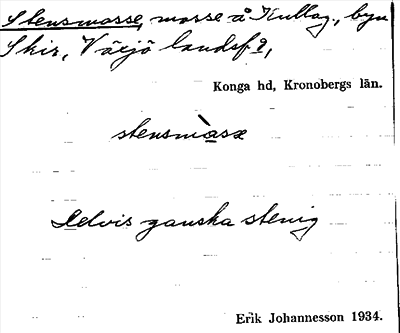 Stensmosse, mosse å Kullag., byn
Skir, Växjö landsf?,
Konga hd, Kronobergs län.
stensmὰsæ
Delvis ganska stenig
Erik Johannesson 1934.